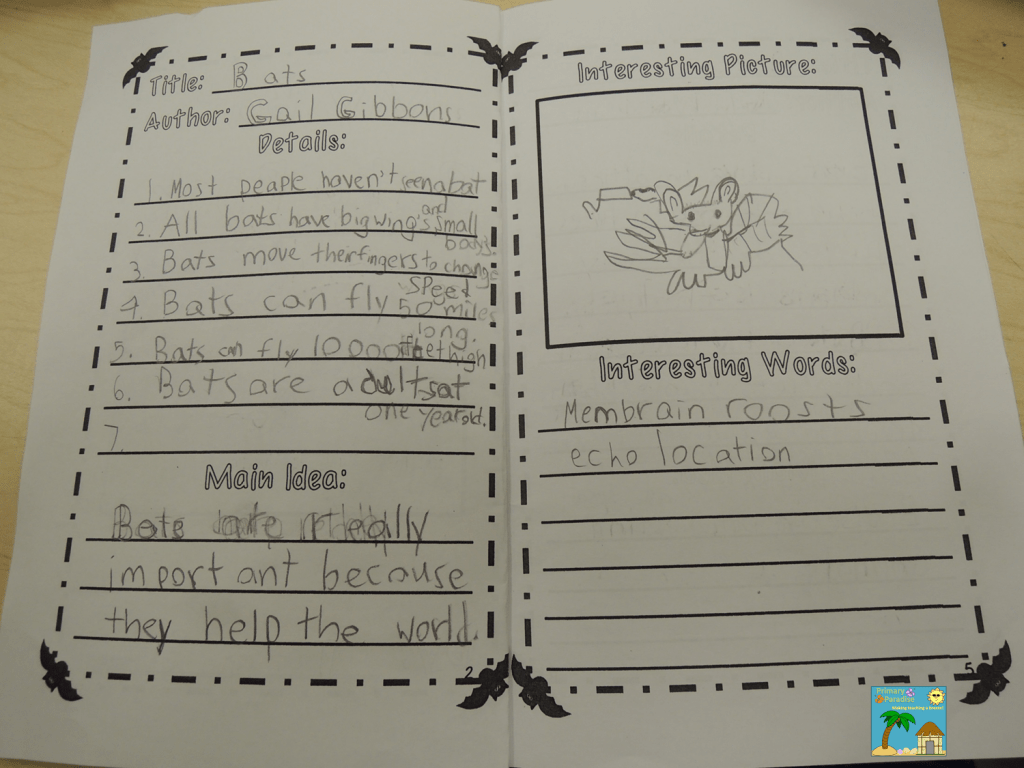 Title: Bats
Author: Gail Gibbons
Details:
1. Most peaple haven't seen a bat
2. All bats have big wing's and small
body's
3. Bats move their fingers to change
speed
4. Bats can fly 50 miles
long.
5. Bats can fly 10000 feet high
6. Bats are adults at
one year old.
7.
Main Idea:
Bats are really
important because
they help the world.
2
Interesting Picture:
Interesting Words:
Membrain roosts
echo location
5
Primary
Paradise
Making teaching a breeze!